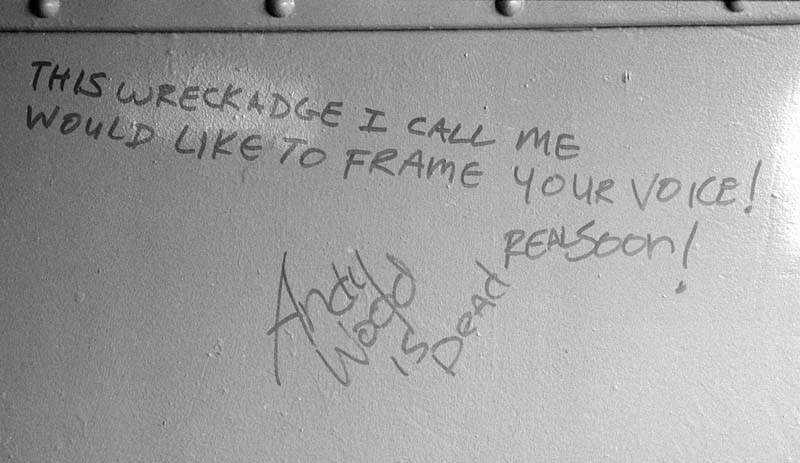 THIS WRECKADGE I CALL ME
WOULD LIKE TO FRAME YOUR VOICE!
REAL SOON!
Andy
Wood
is
Dead